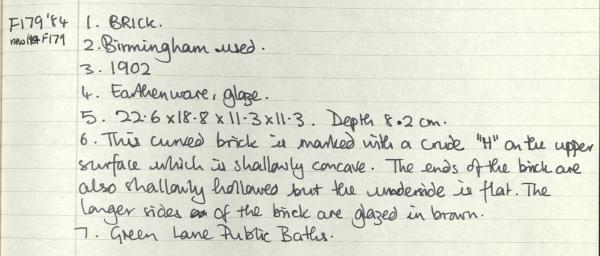 F179'84
1984F179
1. BRICK.
2. Birmingham used.
3. 1902
4. Earthenware, glaze.
5. 22.6 x 18.8 x 11.3 x 11.3. Depth 8.2 cm.
6. This curved brick is marked with a crude "H" on the upper
surface which is shallowly concave. The ends of the brick are
also shallowly hollowed but the underside is flat. The
longer sides of the brick are glazed in brown.
7. Green Lane Public Baths.